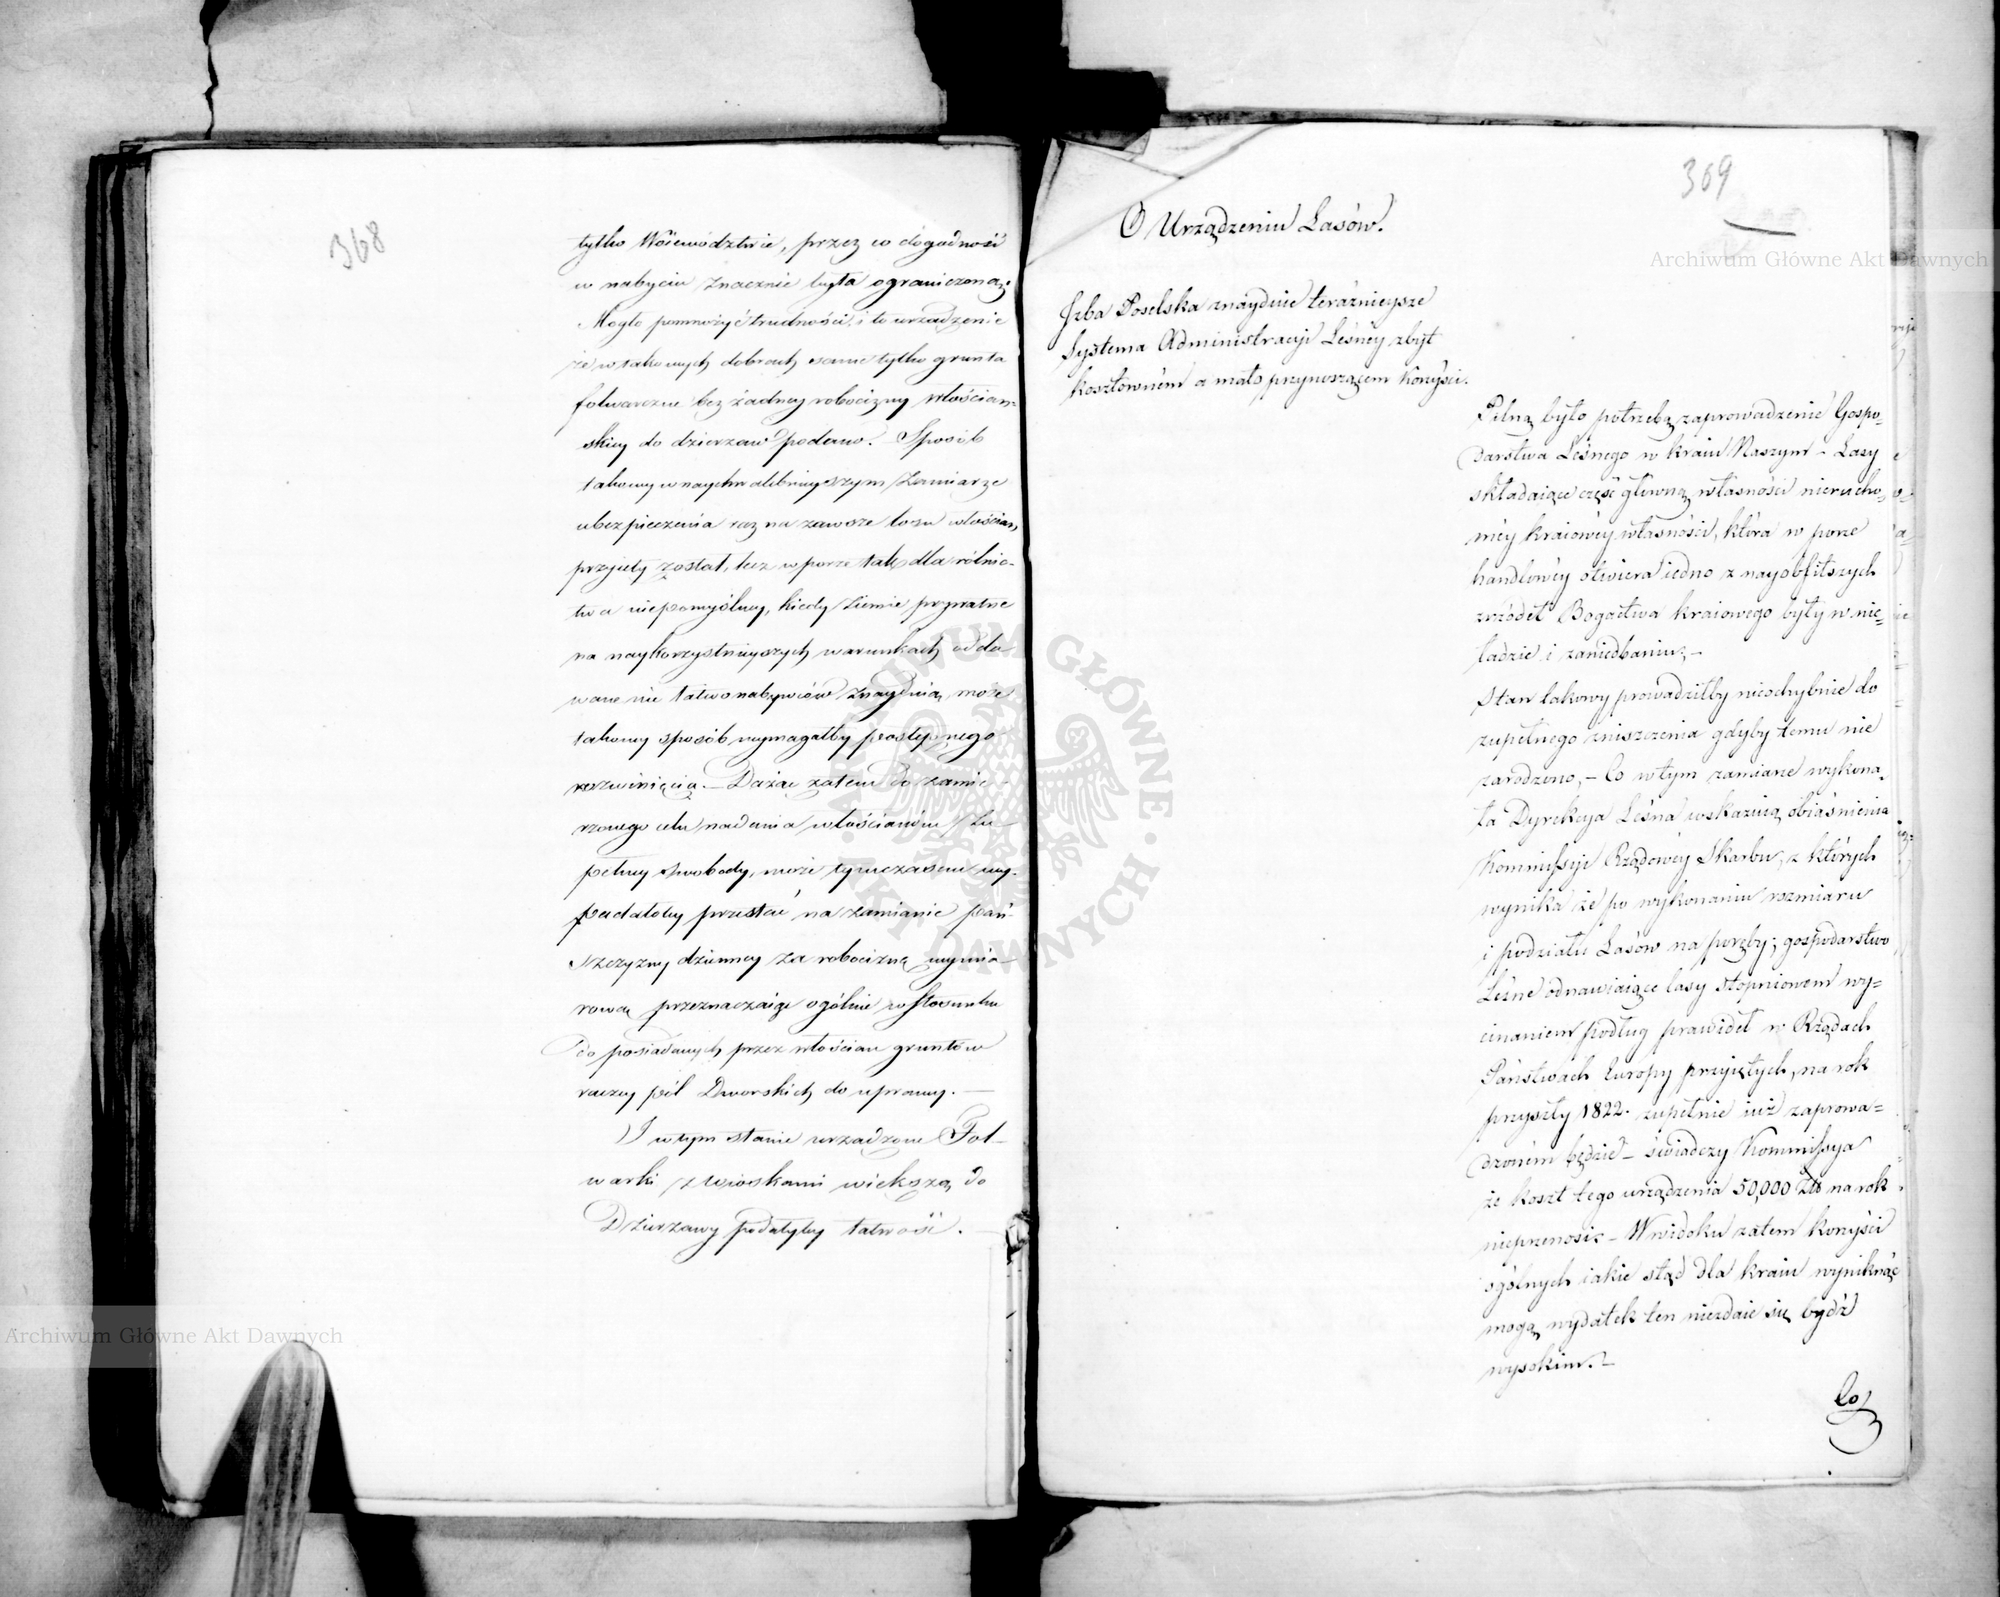 368
tylko Woiewództwie, przez co dogodność
w nabyciu znacznie była ograniczoną.
Mogło pomnożyć trudności, i to urządzenie
że w takowych dobrach same tylko grunta
folwarczne bez żadney robocizny włościań-
skiey do dzierżaw podano. Sposób
takowy w naychwalebnieyszym zamiarze
ubezpieczenia raz na zawsze losu włościan,
przyięty został, lecz w porze tak dla rólnic-
twa niepomyślney, kiedy ziemie prywatne
na naykorzystnieyszych warunkach odda-
wane nie łatwo nabywców znayduią, może
takowy sposób wymagałby postępnego
rozwinięcia. — Dążąc zatem do zamie-
rzonego celu nadania włościanom zu-
pełney swobody, może tymczasem wy-
padałoby przestać na zamianie pań-
szczyzny dzienney za robociznę wymia-
rową przeznaczaiąc ogólnie w stosunku
do posiadanych przez włościan gruntów
raczey pól Dworskich do uprawy. —
I w tym stanie urządzone Fol-
warki z wioskami większą do
Dzierżawy podałyby łatwość. —
369
O Urządzeniu Lasów.
Izba Poselska znayduie teraźnieysze
Systema Administracyi Leśney zbyt
kosztownem a mało przynoszącem korzyści.
Pilną było potrzebą zaprowadzenie Gospo-
darstwa Leśnego w kraiu Naszym — Lasy
składaiące część główną własności nierucho-
mey kraiowey własności, która w porze
handlowey otwiera iedno z nayobfitszych
zrzódeł Bogactwa kraiowego były w nie-
ładzie i zaniedbaniu; —
Stan takowy prowadziłby nieochybnie do
zupełnego zniszczenia gdyby temu nie
zaradzono, — Co w tym zamiarze wykona-
ła Dyrekcya Leśna wskazuią obiaśnienia
Kommissyi Rządowey Skarbu, z których
wynika że po wykonaniu rozmiaru
i podziału Lasów na poręby; gospodarstwo
Leśne odnawiaiące lasy stopniowem wy-
cinaniem podług prawideł w Rządach
Państwach Europy przyiętych, na rok
przyszły 1822. zupełnie iuż zaprowa-
dzonem będzie — świadczy Kommissya
że koszt tego urządzenia 50,000 Złt na rok
nieprzenosi — W widoku zatem korzyści
ogólnych iakie stąd dla kraiu wyniknąć
mogą wydatek ten niezdaie się bydź
wysokim. —
Co
Archiwum Główne Akt Dawnych
Archiwum Główne Akt Dawnych
ARCHIWUM GŁÓWNE · AKT DAWNYCH ·